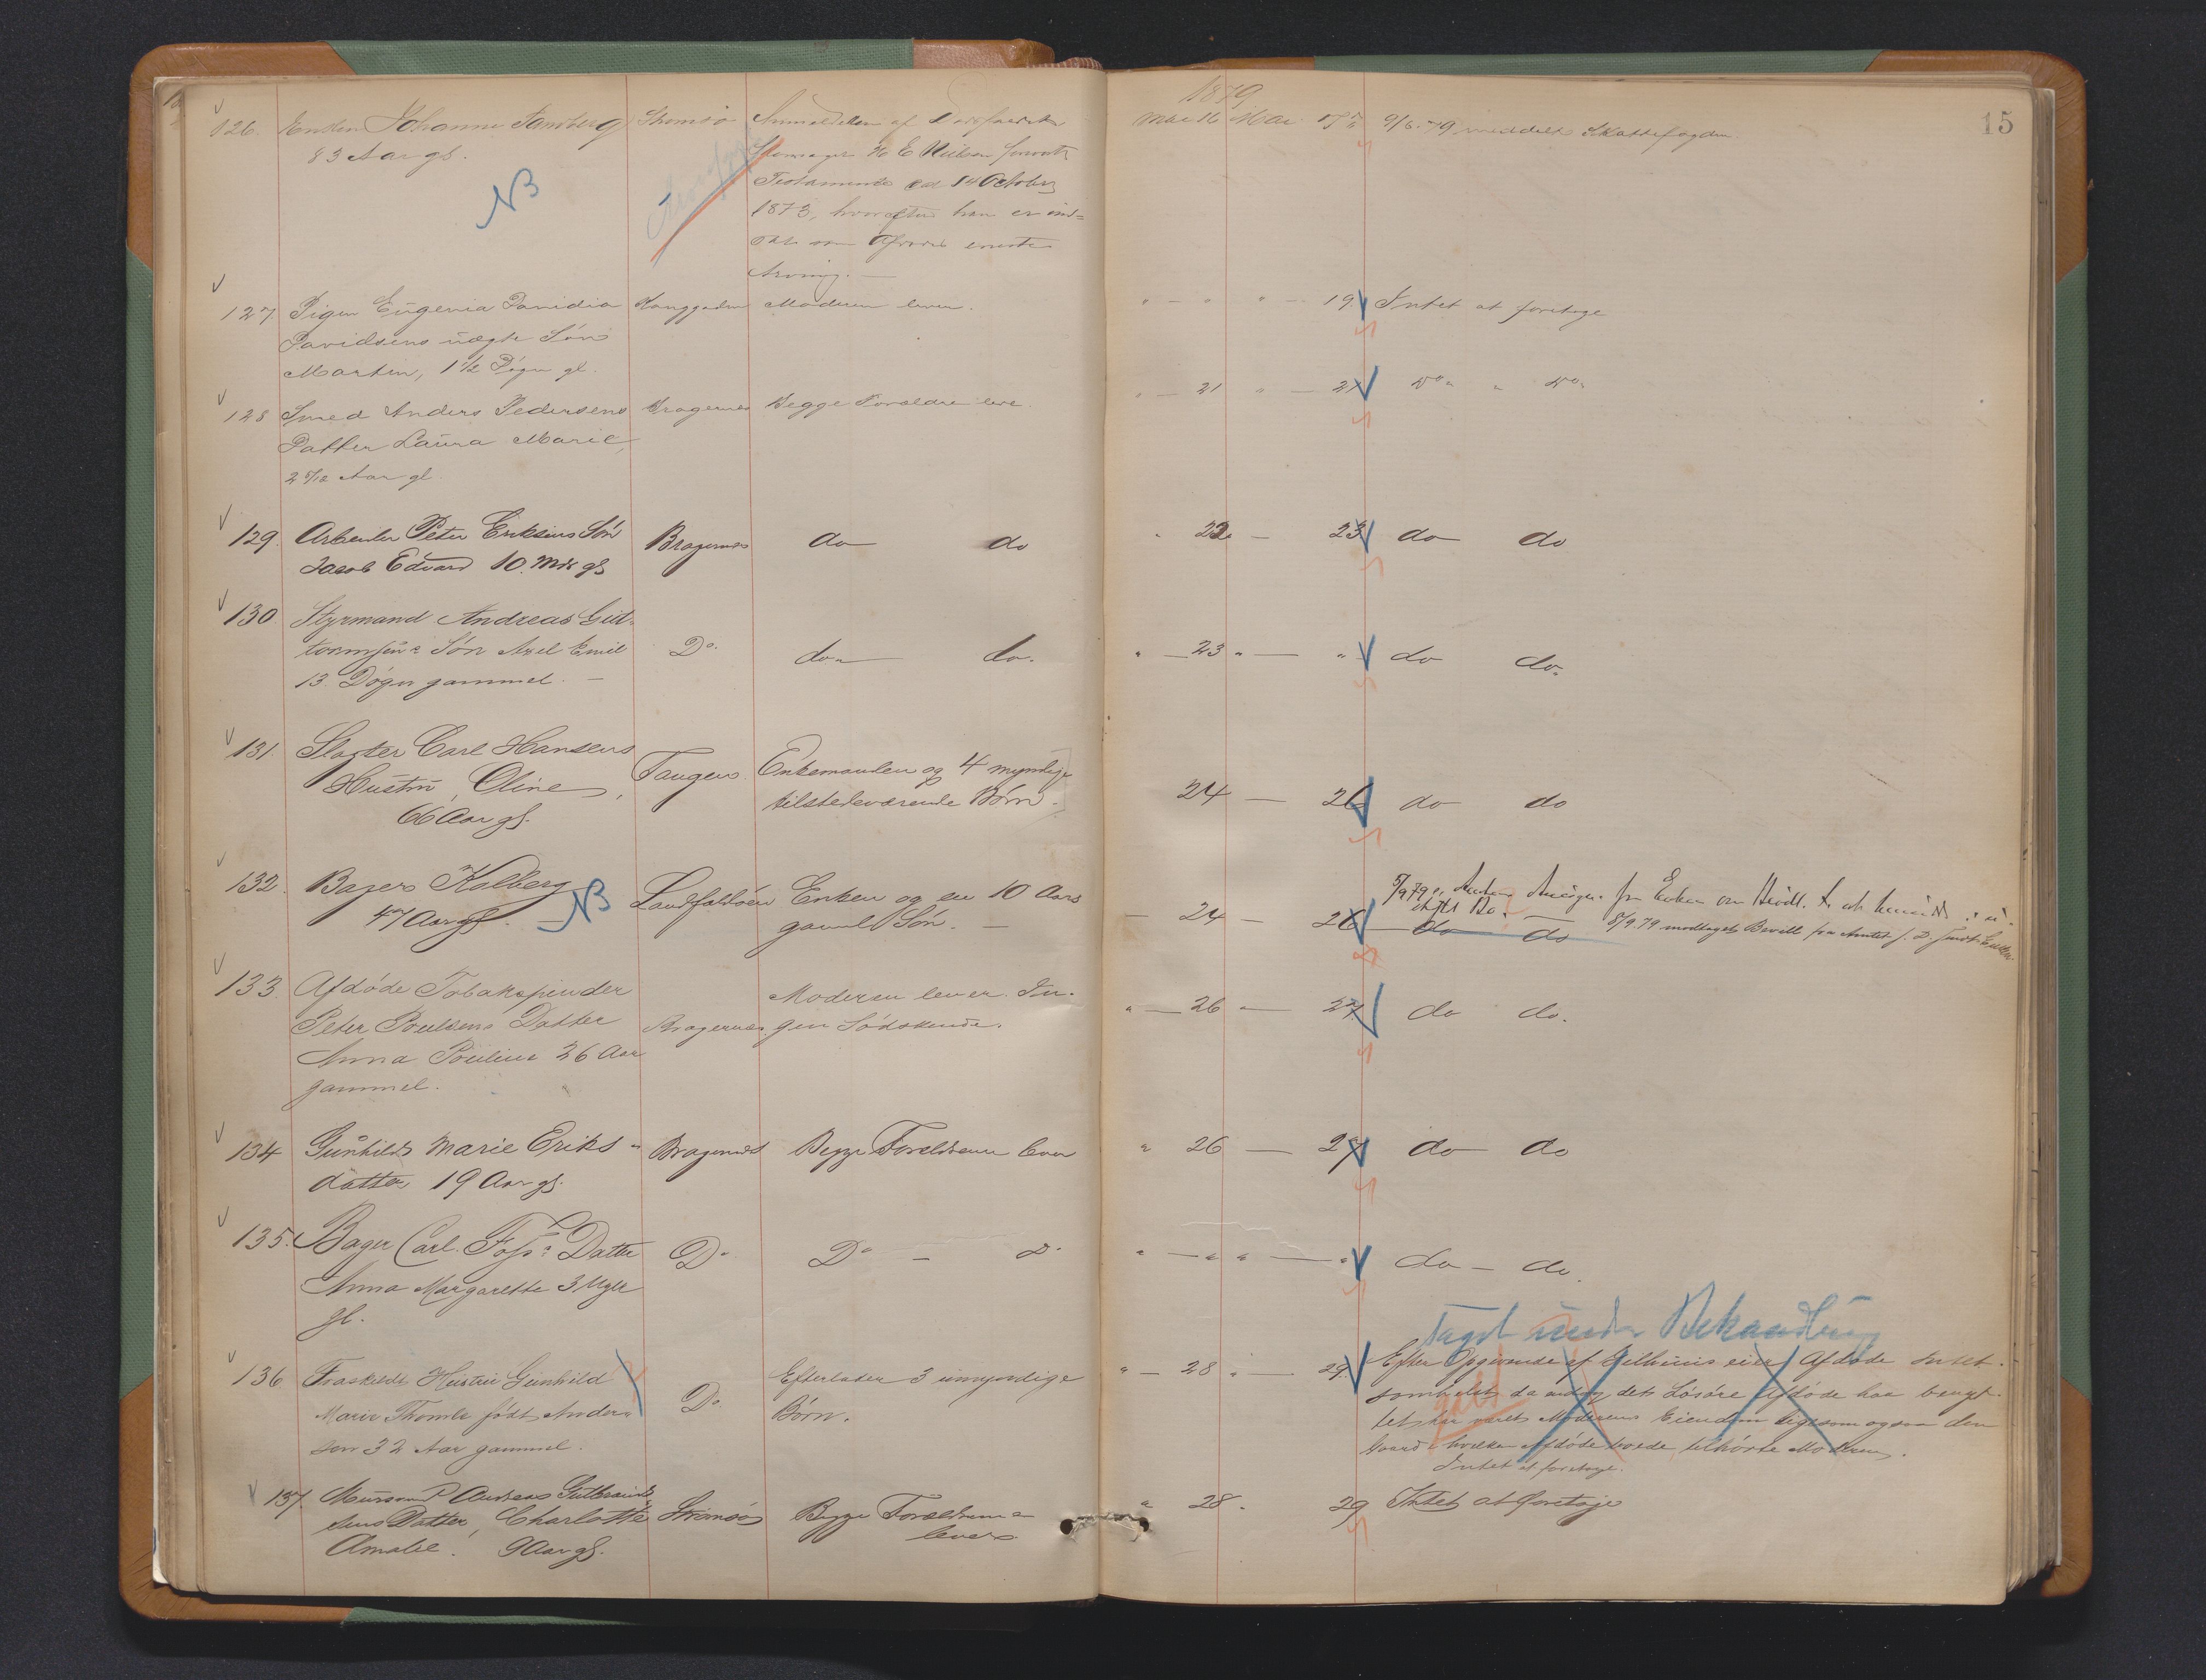 1879
15
126. Enken Johanne Samberg Strømsø Anmeldelsen af Dødsfaldet Mai 16 Mai 17 9/6.79 meddelt Skattefogden
83 Aar gl. E Nielsen
NB Testamente 14 October
1873, hvorefter han er ind-
som Afdødes eneste
Arving. —
127. Pigen Eugenia Davidia Konggaden Moderen lever. " — " " — 19. Intet at foretage
Davidsens uægte Søn
Martin, 1 1/2 Døgn gl.
128 Smed Anders Pedersens Bragernes Begge Forældre leve. " — 21 " — 21 Do " Do
Datter Laura Marie,
2 5/12 Aar gl.
129. Arbeider Peter Eriksens Søn Bragernæs do do " 22 — 23 do do
Jacob Edvard 10. Mdr gl
130 Styrmand Andreas Gut-
tormsens Søn Axel Emil Do. do do. " — 23 " — " do do.
13. Døgn gammel. —
131. Slagter Carl Hansens Tangen. Enkemanden og 4 myndige
Hustru, Oline, tilstedeværende Børn. 24 — 26 do do
66 Aar gl.
132. Bager Kolberg Landfaldøen Enken og en 10 Aars — 24 — 26 do do
47 Aar gl. — NB gaml Søn. —
5/9 79 fra Enken om
8/9.79 modtaget Bevill. fra Amtet
133. Afdøde Tobakspinder Moderen lever. In- " — 26 " — 27 do do.
Peter Poulsens Datter Bragernæs. gen Sødskende.
Anna Pouline 26 Aar
gammel.
134 Gunhild Marie Eriks- Bragernæs Begge Forældrene lever " 26 — 27 do do
datter 19 Aar gl.
135. Bager Carl. Foss's Datter Do Do — Do " — " " — " do — do.
Anna Margarethe 3 Uger
gl.
Taget under Behandling
136 Fraskilde Hustru Gunhild Do. Efterlader 3 umyndige " — 28 " — 29. Efter Opgivende af eier Afdøde Intet
Marie født Anders- Børn. da det Løsøre Afdøde har benyt-
sen 32 Aar gammel. tet har været Moderens Eiendom ligesom ogsaa den
Gaard i hvilken Afdøde boede, tilhørte Moderen.
Intet at foretage.
137. Murssvend Andreas Gulbrand- Strømsø Begge Forældrene " 28. 29 Intet at foretage
sens Datter, Charlotte lever
Amalie. 9 Aar gl.